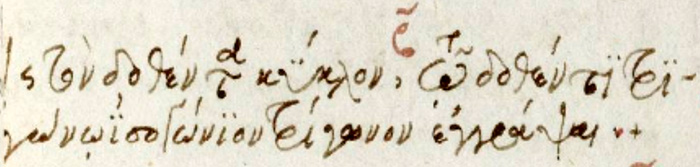 ἰς τὸν δοθέντα κύκλον, τῶ δοθέντι τρι-
γώνω ἰσογώνιον τρίγωνον ἐγγράψαι